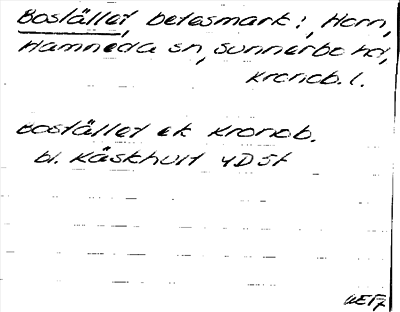 Bostället, betesmark i, Horn,
Hamneda sn, Sunnerbo hd,
Kronob. l.
Bostället ek Kronob.
bl. Käskhult 4D5f